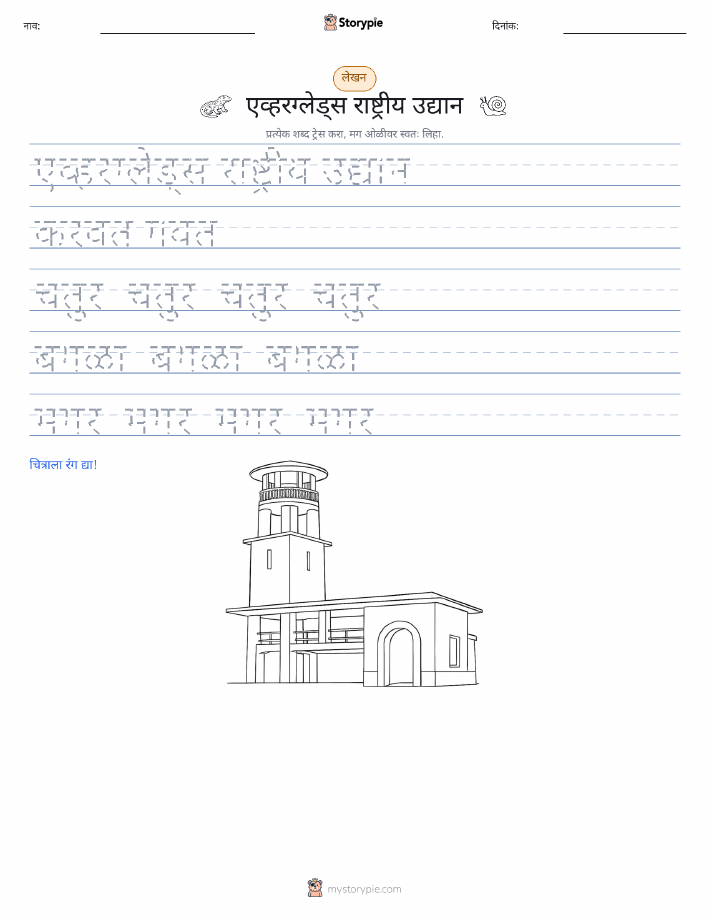 नाव:
Storypie
दिनांक:
लेखन
एव्हरग्लेड्स राष्ट्रीय उद्यान
प्रत्येक शब्द ट्रेस करा, मग ओळीवर स्वतः लिहा.
एव्हरग्लेड्स राष्ट्रीय उद्यान
करवत गवत
चतुर चतुर चतुर चतुर
बगळा बगळा बगळा
मगर मगर मगर मगर
चित्राला रंग द्या!
mystorypie.com